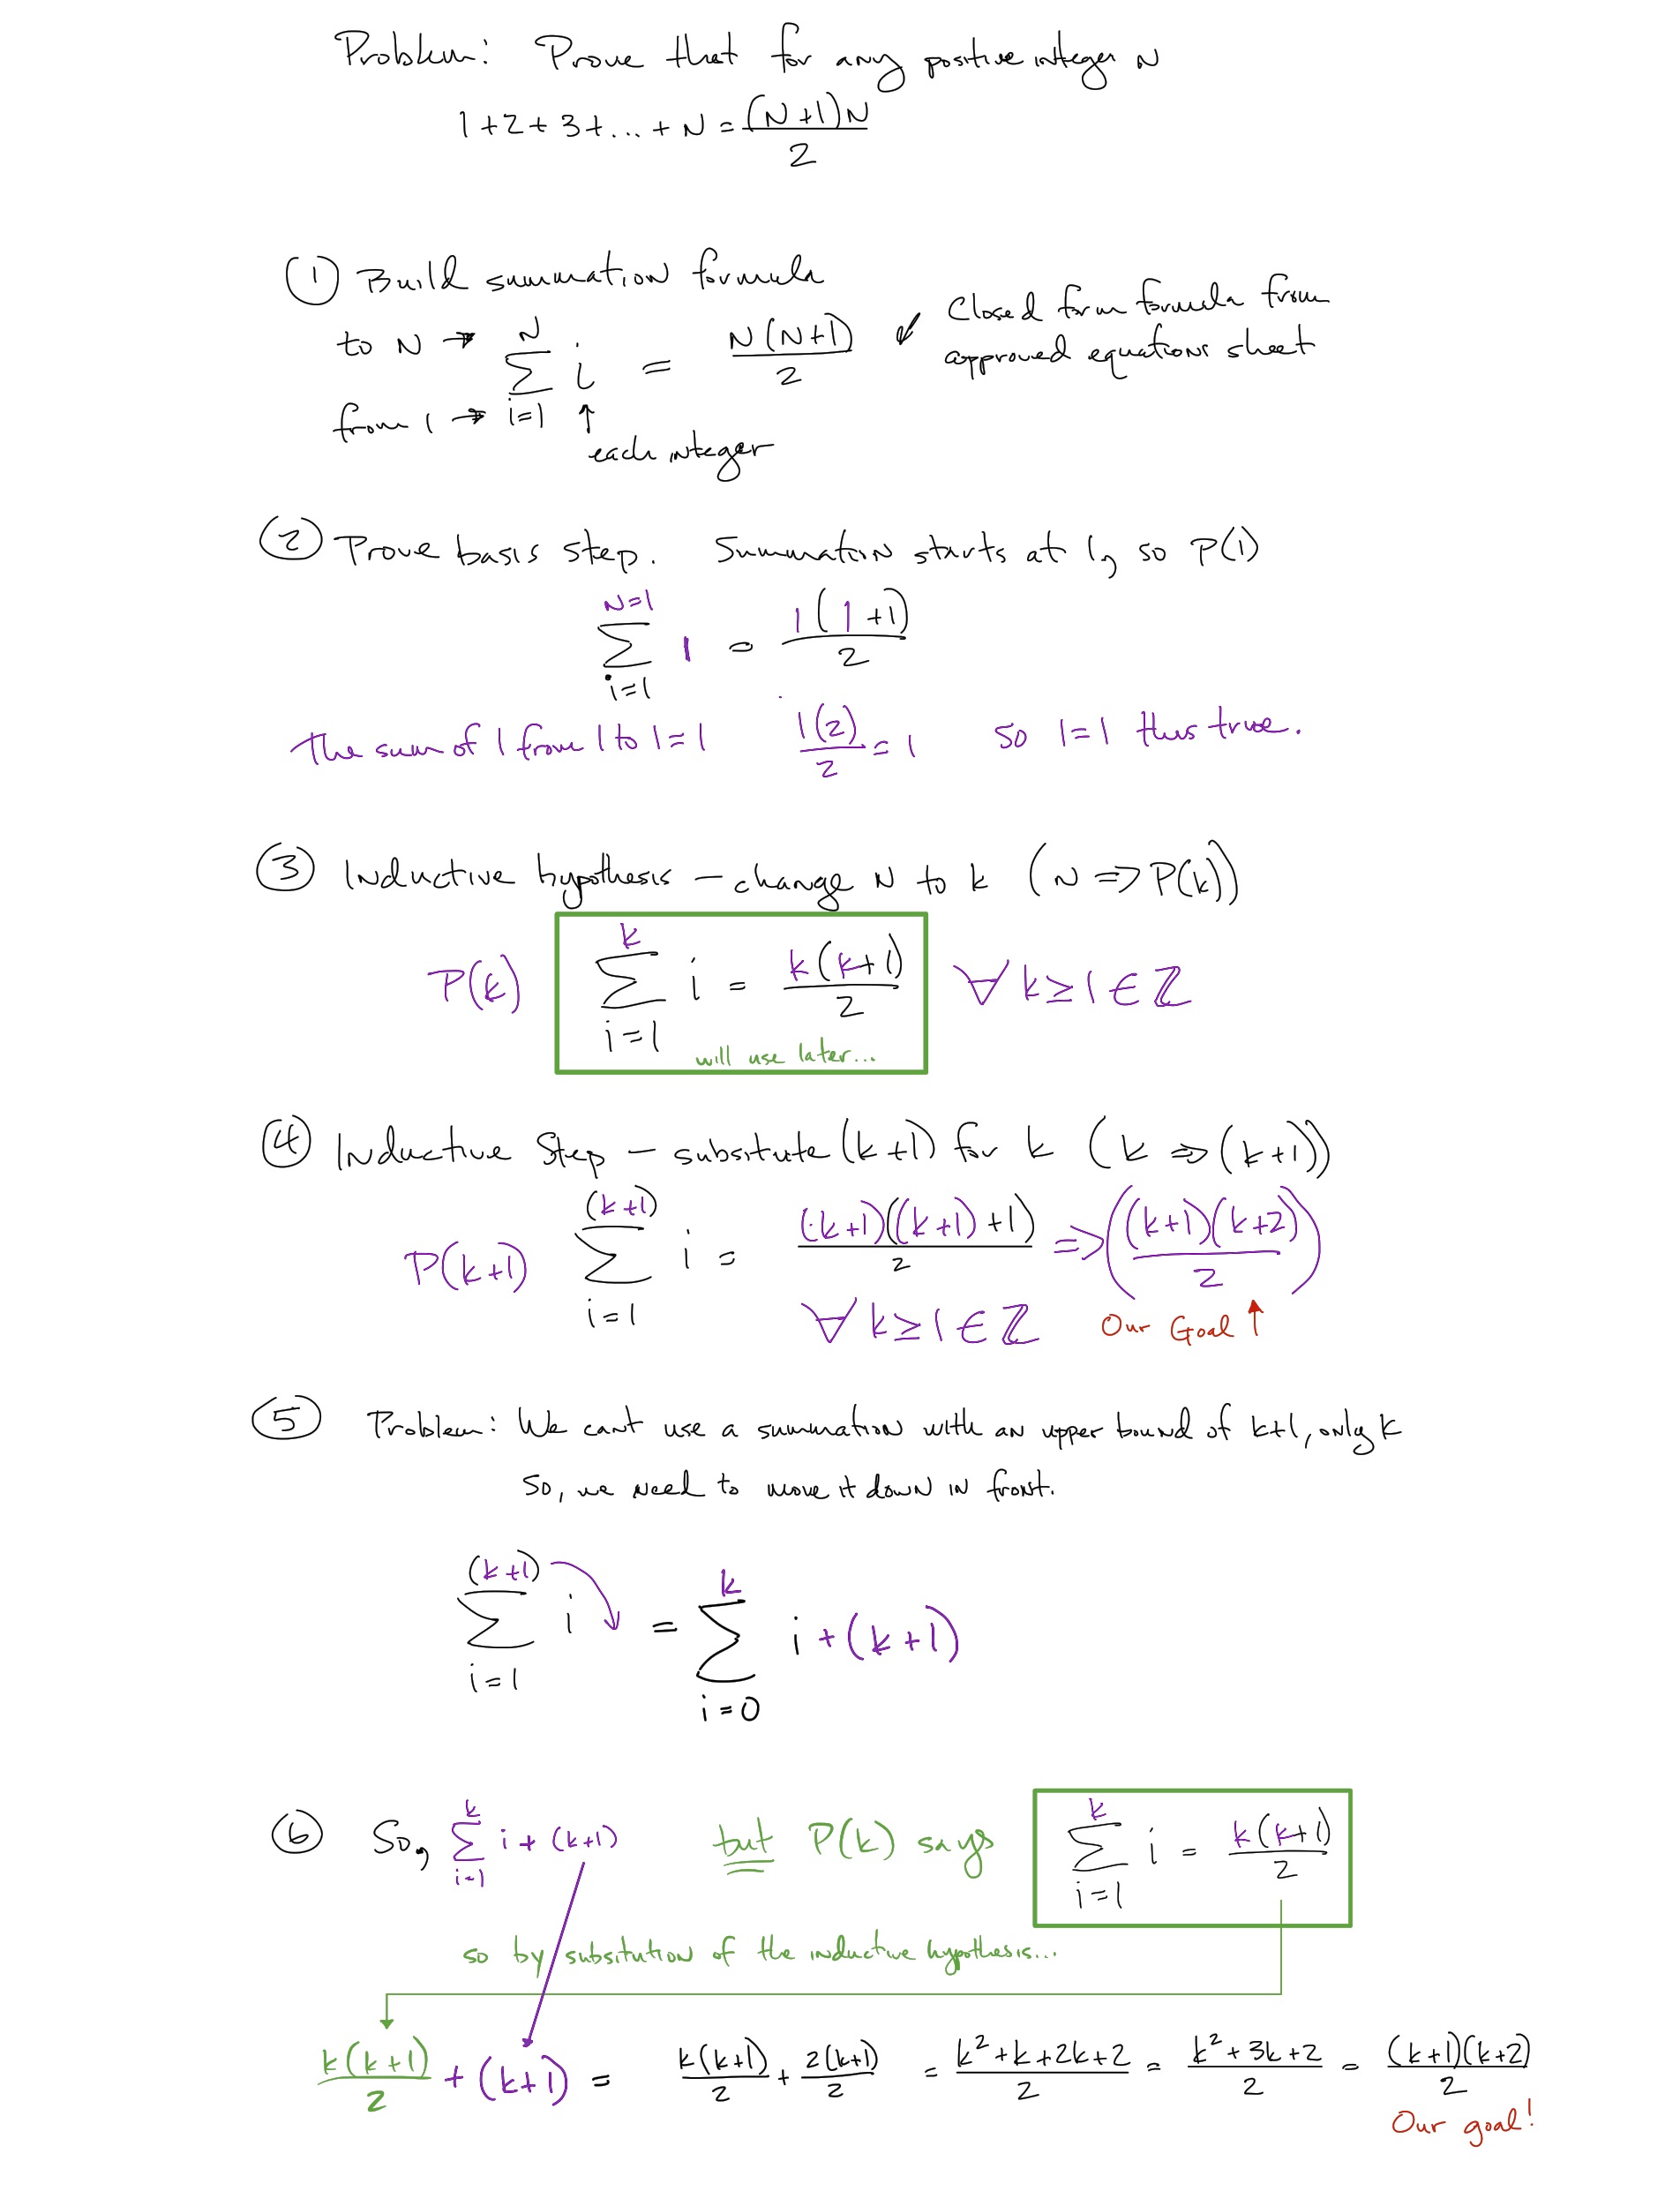 Problem: Prove that for any positive integer N
1+2+3+...+N = (N+1)N / 2
① Build summation formula
to N → ∑_{i=1}^{N} i = N(N+1) / 2 ↙ Closed form formula from approved equations sheet
from 1 → i=1 ↑
each integer
② Prove basis step. Summation starts at 1, so P(1)
∑_{i=1}^{N=1} 1 = 1(1+1) / 2
The sum of 1 from 1 to 1 = 1 1(2) / 2 = 1 so 1=1 thus true.
③ Inductive hypothesis – change N to k (N => P(k))
P(k) ∑_{i=1}^{k} i = k(k+1) / 2 ∀ k ≥ 1 ∈ ℤ
will use later...
④ Inductive Step – subsitute (k+1) for k (k => (k+1))
P(k+1) ∑_{i=1}^{(k+1)} i = (k+1)((k+1)+1) / 2 => ((k+1)(k+2) / 2)
∀ k ≥ 1 ∈ ℤ Our Goal ↑
⑤ Problem: We cant use a summation with an upper bound of k+1, only k
So, we need to move it down in front.
∑_{i=1}^{(k+1)} i = ∑_{i=0}^{k} i + (k+1)
⑥ So, ∑_{i=1}^{k} i + (k+1) but P(k) says ∑_{i=1}^{k} i = k(k+1) / 2
so by subsitution of the inductive hypothesis...
k(k+1) / 2 + (k+1) = k(k+1) / 2 + 2(k+1) / 2 = k²+k+2k+2 / 2 = k²+3k+2 / 2 = (k+1)(k+2) / 2
Our goal!